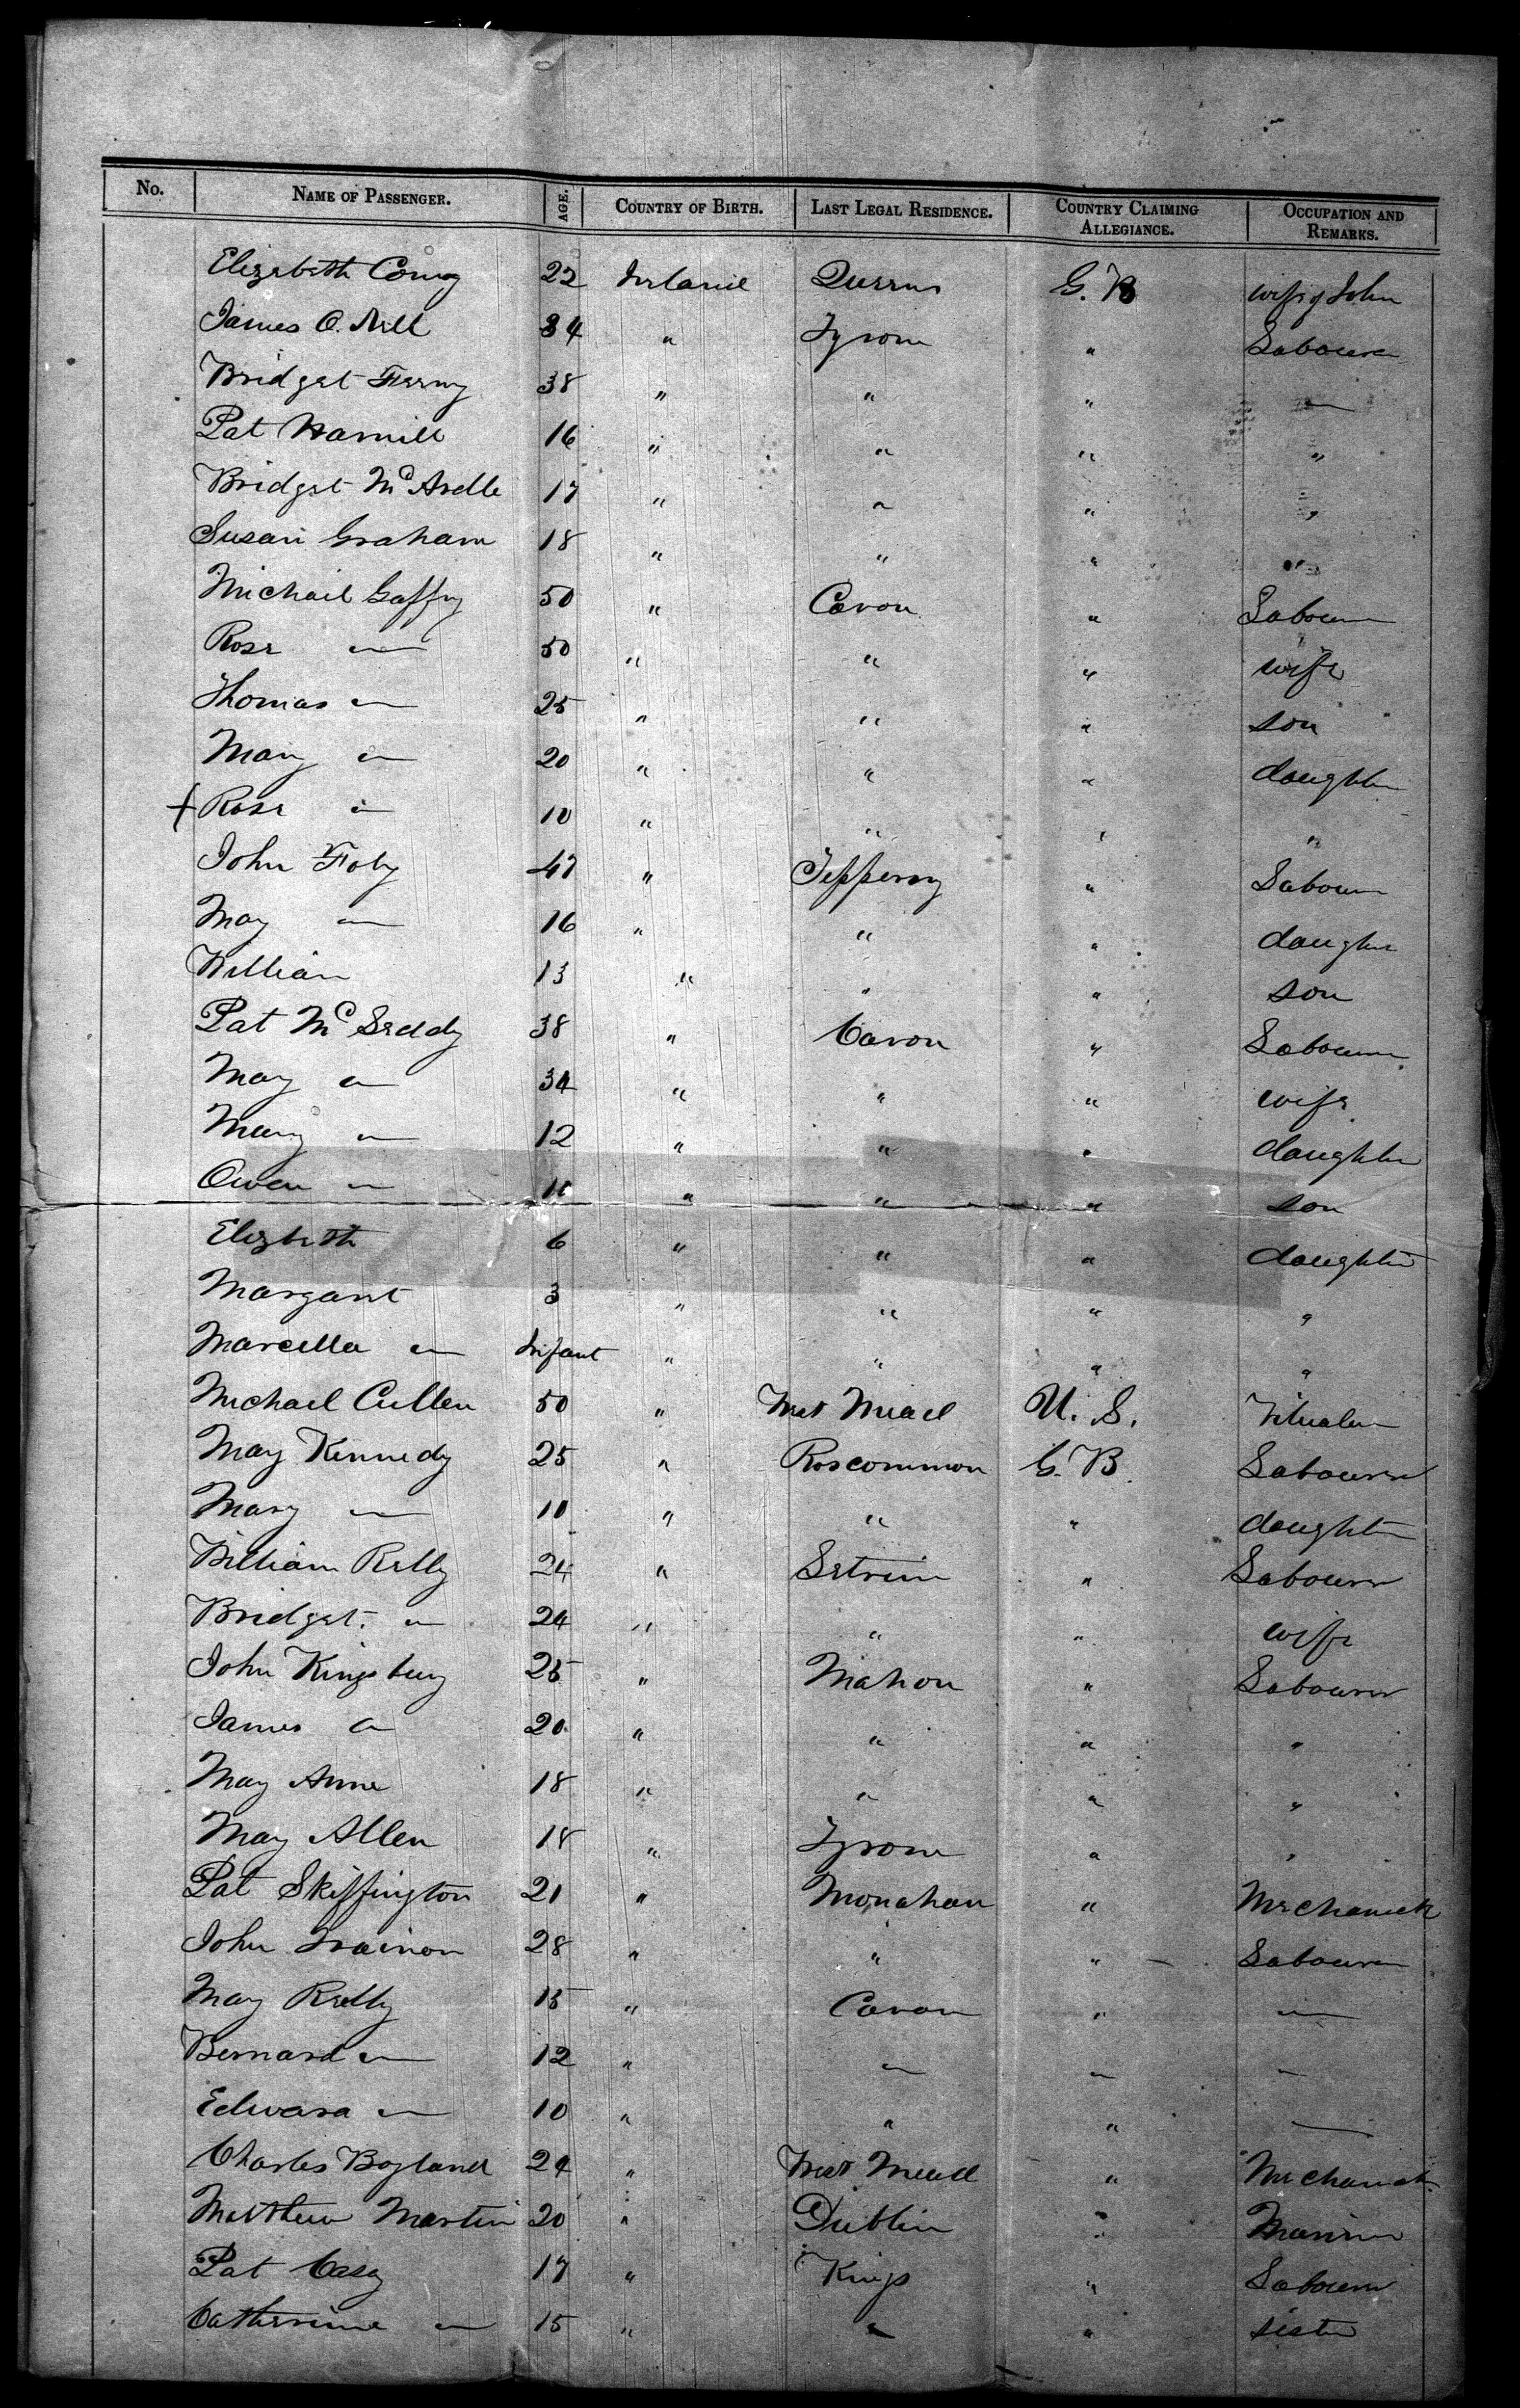 No. NAME OF PASSENGER. AGE. COUNTRY OF BIRTH. LAST LEGAL RESIDENCE. COUNTRY CLAIMING ALLEGIANCE. OCCUPATION AND REMARKS.
Elizabeth 22 Ireland Queens G. B wife of John
James O. Nell 34 " Tyrone " Labourer
Bridget 38 " " " —
Pat Hamill 16 " " " "
Bridget McArdle 17 " " " "
Susan Graham 18 " " " "
Michail Gaffny 50 " Cavan " Labourer
Rose " 50 " " " wife
Thomas " 25 " " " son
Mary " 20 " " " daughter
+ Rose " 10 " " " "
John Foly 47 " Tipperary " Labourer
May " 16 " " " daughter
William 13 " " " son
Pat Mc Leddy 38 " Cavan " Labourer
May " 34 " " " wife
Mary " 12 " " " daughter
Owen " 11 " " " son
Elizbeth 6 " " " daughter
Margaret 3 " " " "
Marcella " Infant " " " "
Michael Cullen 50 " West Mead U. S.
May Kennedy 25 " Roscommon G. B. Labourer
Mary " 10 " " " daughter
William Relly 24 " Letrim " Labourer
Bridget " 24 " " " wife
John Kingsbury 25 " Mahon " Labourer
James " 20 " " " "
May Anne 18 " " " "
May Allen 18 " Tyrone " "
Pat Skiffington 21 " Monahan " Mechanick
John Trainon 28 " " " Labourer
May Reilly 15 " Cavan " "
Bernard " 12 " " " "
Edward " 10 " " " —
Charles Boyland 24 " West Mead " Mechanick
Matthew Martin 20 " Dublin " Mariner
Pat Casey 17 " Kings " Labourer
Catherine " 15 " " " sister